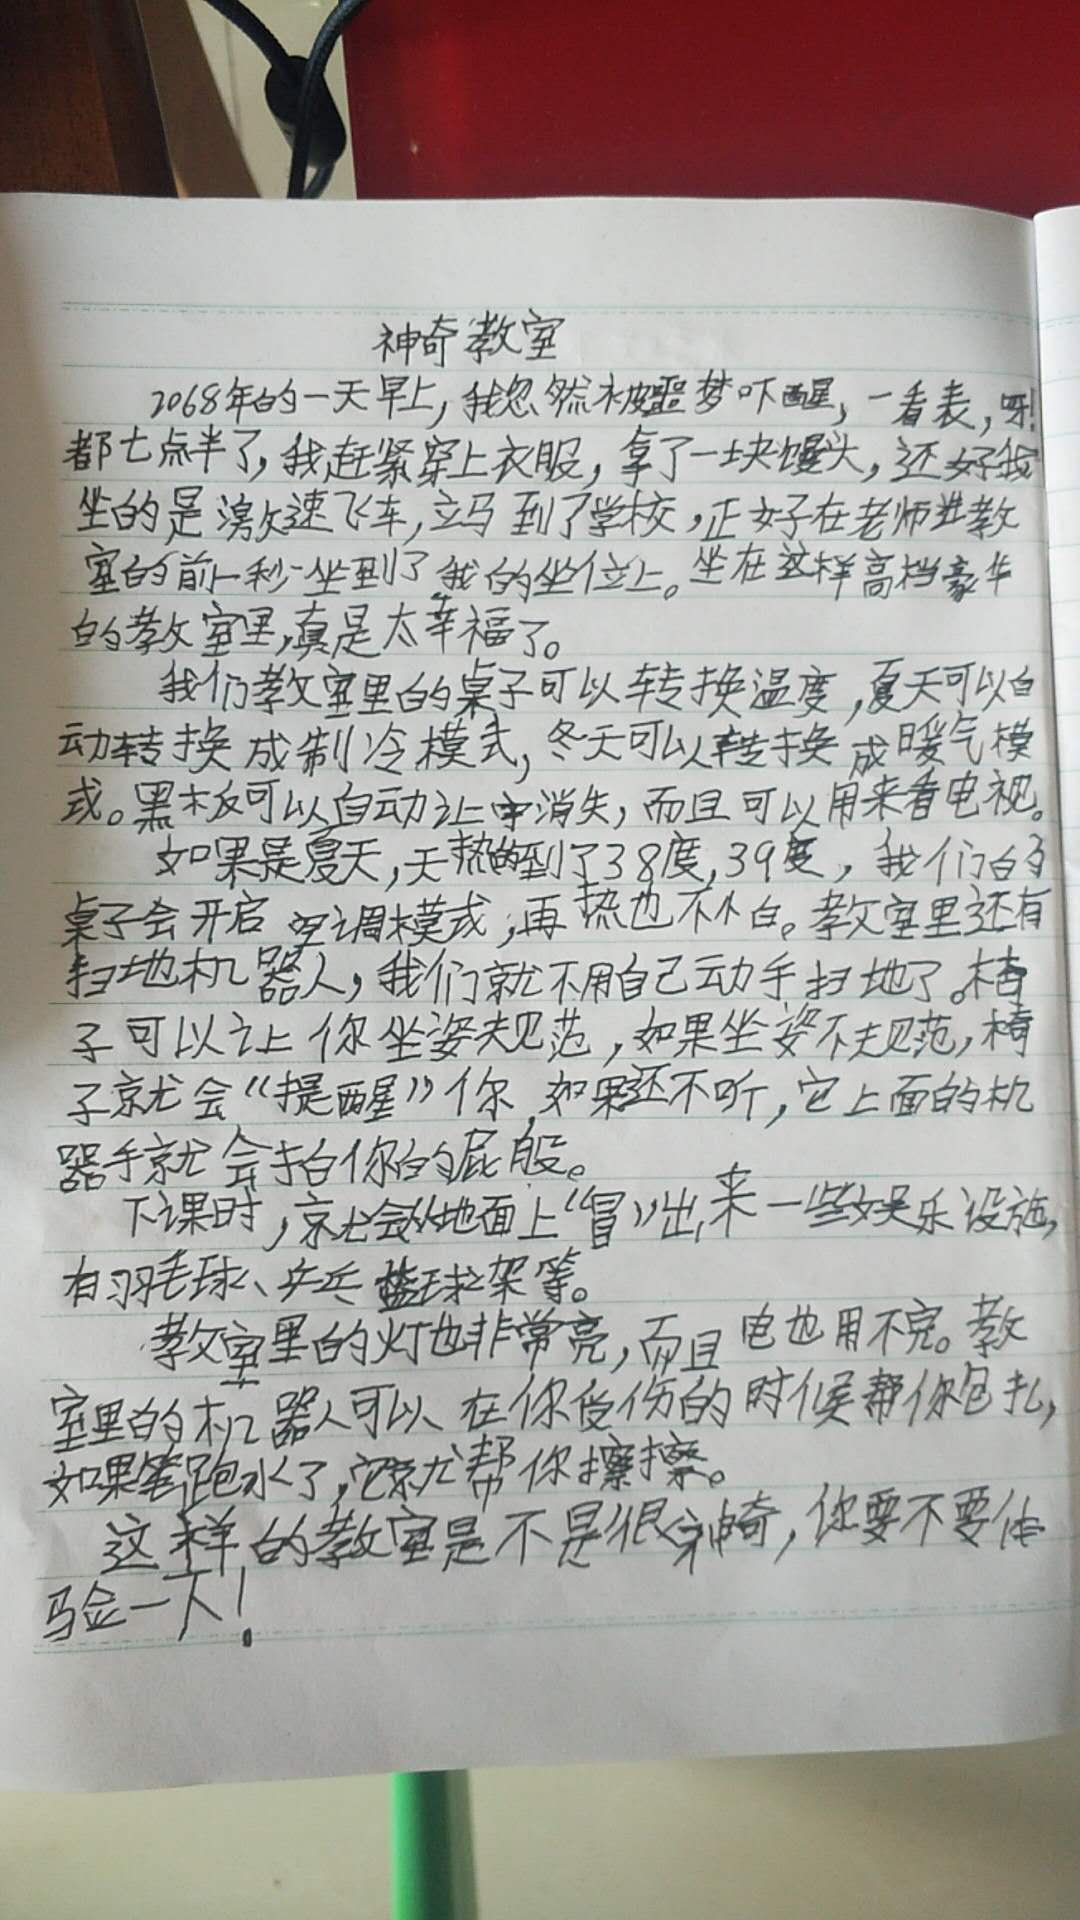 神奇教室
2068年的一天早上，我忽然被噩梦吓醒，一看表，呀！
都七点半了，我赶紧穿上衣服，拿了一块馒头，还好我
坐的是激速飞车，立马到了学校，正好在老师进教
室的前一秒坐到了我的坐位上。坐在这样高档豪华
的教室里，真是太幸福了。
我们教室里的桌子可以转换温度，夏天可以自
动转换成制冷模式，冬天可以转换成暖气模
式。黑板可以自动让字消失，而且可以用来看电视。
如果是夏天，天热的到了38度，39度，我们的
桌子会开启空调模式，再热也不怕。教室里还有
扫地机器人，我们就不用自己动手扫地了。椅
子可以让你坐姿规范，如果坐姿不规范，椅
子就会“提醒”你，如果还不听，它上面的机
器手就会拍你的屁股。
下课时，就会从地面上“冒”出来一些娱乐设施，
有羽毛球、乒乓、篮球架等。
教室里的灯也非常亮，而且电也用不完。教
室里的机器人可以在你受伤的时候帮你包扎，
如果笔跑水了，它就帮你擦擦。
这样的教室是不是很神奇，你要不要体
验一下！